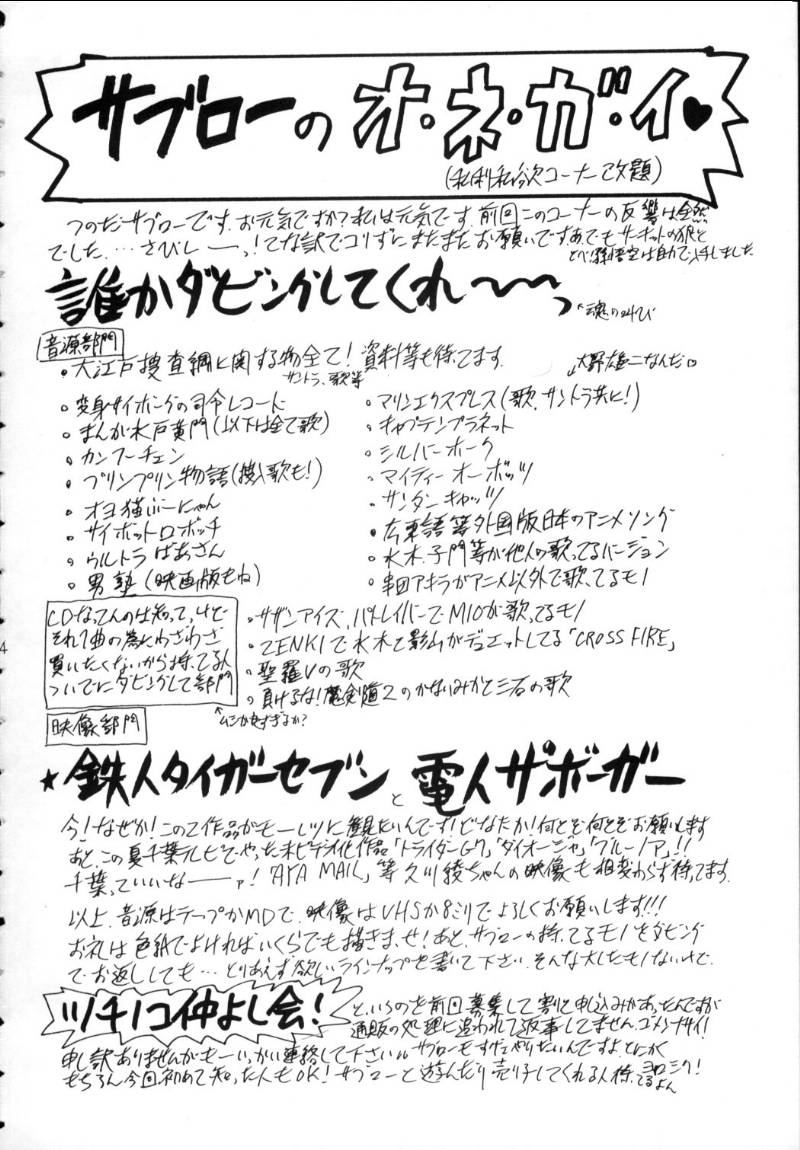 サブローの オ・ネ・ガ・イ♥
(私利私欲コーナー改題)
つのだサブローです。お元気ですか?私は元気です。前回このコーナーの反響は全然
でした…さびしーーっ!てな訳でコリずにまたまたお願いです。あ、でもサーキットの狼と
とべ!孫悟空は自力で入手しました。
誰かダビングしてくれ〜〜〜っ
↑魂の叫び
音源部門
・大江戸捜査網に関する物全て!資料等も待ってます。
サントラ、歌等
・変身サイボーグの司令レコード
・まんが水戸黄門(以下は全て歌)
・カンフーチェン
・プリンプリン物語(挿入歌も!)
・オヨ猫ぶーにゃん
・サイボットロボッチ
・ウルトラばあさん
・男塾(映画版もね)
大野雄二なんだ♡
・マリンエクスプレス(歌、サントラ共に!)
・キャプテンプラネット
・シルバーホーク
・マイティーオーボッツ
・サンダーキャッツ
・広東語等外国版日本のアニメソング
・水木、子門等が他人の歌歌ってるバージョン
・串田アキラがアニメ以外で歌ってるモノ
CDなってんのは知ってっけど
それ1曲の為にわざわざ
買いたくないから持ってる人
ついでにダビングして部門
↑ムシが良すぎるか?
・サザンアイズ、パトレイバーでMIOが歌ってるモノ
・ZENKIで水木と影山がデュエットしてる「CROSS FIRE」
・聖羅Vの歌
・負けるな!魔剣道2のかないみかと三石の歌
映像部門
★鉄人タイガーセブンと電人ザボーガー
今!なぜか!この2作品がモーレツに観たいんです!どなたか!何とぞ何とぞお願いします
あと、この夏千葉テレビでやった未ビデオ化作品「トライダーG7」、「ダイオージャ」、「グルーノア」!!
千葉っていいなーーァ!「AYA MAIL」等久川綾ちゃんの映像も相変わらず待ってます。
以上、音源はテープかMDで、映像はVHSか8ミリでよろしくお願いします!!!
お礼は色紙でよければいくらでも描きまっせ!あと、サブローの持ってるモノをダビング
でお返ししても…とりあえず欲しいラインナップを書いて下さい。そんな大したモノないけど。
ツチノコ仲よし会!
というのを前回募集して割と申込みがあったんですが
通販の処理に追われて返事してません。ゴメンナサイ!
申し訳ありませんがもーいっかい連絡して下さい。サブローもすっげェやりたいんですよ、とにかく
もちろん今回初めて知った人もOK!サブローと遊んだり売り子してくれる人待ってるよん ヨロシク!
4